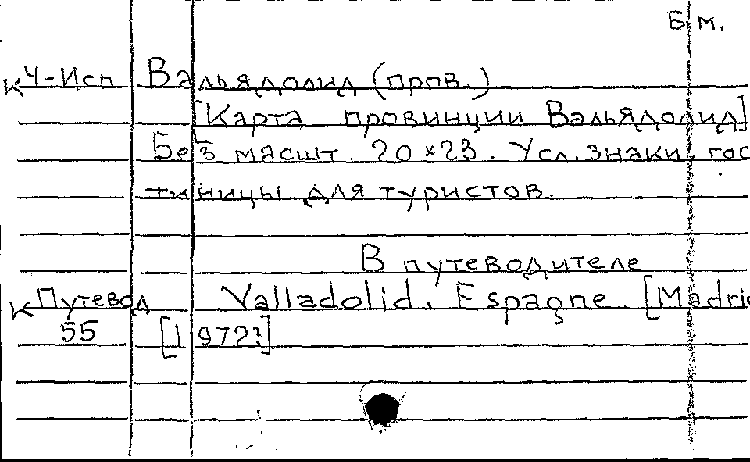 Б м.
К Ч-Исп Вальядолид (пров.)
[Карта провинции Вальядолид]
Без масшт. 20×23. Усл. знаки: гос
тиницы для туристов.
В путеводителе
К Путевод Valladolid. Espagne. [Madri
55 [1972?]